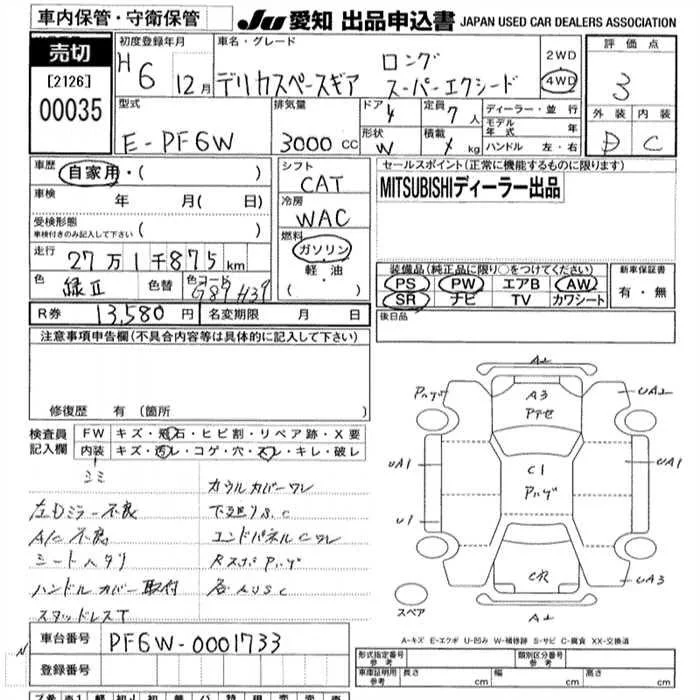 車内保管・守衛保管
JU 愛知 出品申込書 JAPAN USED CAR DEALERS ASSOCIATION
売切
[2126]
00035
初度登録年月
H6 12月
車名・グレード
デリカスペースギア
ロング
スーパーエクシード
2WD
4WD
評価点
3
外装 内装
D C
型式
E-PF6W
排気量
3000 CC
ドア 4
形状 W
定員 7人
積載 kg
ディーラー・並行
モデル年式 年
ハンドル 左・右
車歴
自家用・( )
車検 年 月( 日)
受検形態
車検付きのみ記入して下さい ( )
走行 27万1千875km
色
色替
色コード
R券 13,580円 名変期限 月 日
シフト
CAT
冷房
WAC
燃料
ガソリン
軽・油
( ・ )
セールスポイント(正常に機能するものに限ります)
MITSUBISHIディーラー出品
装備品(純正品に限り○をつけてください)
PS PW エアB AW
SR ナビ TV カワシート
新車保証書
有・無
後日品
注意事項申告欄(不具合内容等は具体的に記入して下さい)
修復歴 有(箇所
検査員
記入欄
FW キズ・飛石・ヒビ割・リペア跡・X要
内装 キズ・汚レ・コゲ・穴・スレ・キレ・破レ
シミ
左Dミラー不良
A/C不良
シートヘタリ
ハンドルカバー取付
スタッドレスT
カウルカバーワレ
下廻りS.C
エンドパネルCワレ
A2
A3
UA2
UA1
C1
UA1
U1
UA3
A2
スペア
A-キズ E-エクボ U-凹み W-補修跡 S-サビ C-腐食 XX-交換済
車台番号 PF6W-0001733
登録番号
形式指定番号
参考
類別区分番号
参考
車庫証明用
参考
長さ cm 幅 cm 高さ cm